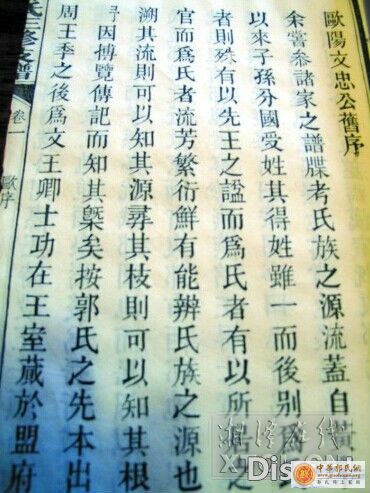 歐陽文忠公舊序
余嘗叅諸家之譜牒考氏族之源流蓋自
以來子孫分國受姓其得姓雖一而後别
者則殊有以先王之諡而爲氏者有以所
官而爲氏者流芳繁衍鮮有能辨氏族之源也
溯其流則可以知其源尋其枝則可以知其根
因博覽傳記而知其槩矣按郭氏之先本出
周王季之後爲文王卿士功在王室藏於盟府
修支譜
卷一
歐序
湘潭在线
Dis